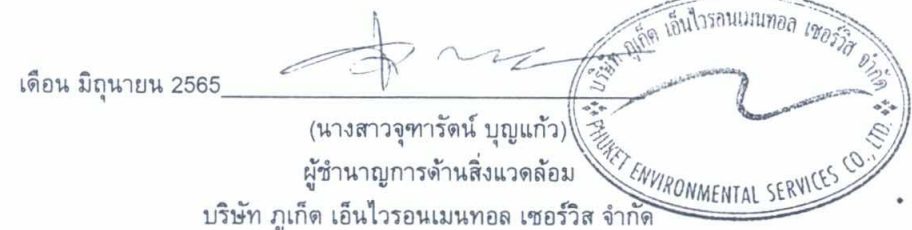 เดือน มิถุนายน 2565
(นางสาวจุฑารัตน์ บุญแก้ว)
ผู้ชำนาญการด้านสิ่งแวดล้อม
บริษัท ภูเก็ต เอ็นไวรอนเมนทอล เซอร์วิส จำกัด
บริษัท ภูเก็ต เอ็นไวรอนเมนทอล เซอร์วิส จำกัด
PHUKET ENVIRONMENTAL SERVICES CO., LTD.